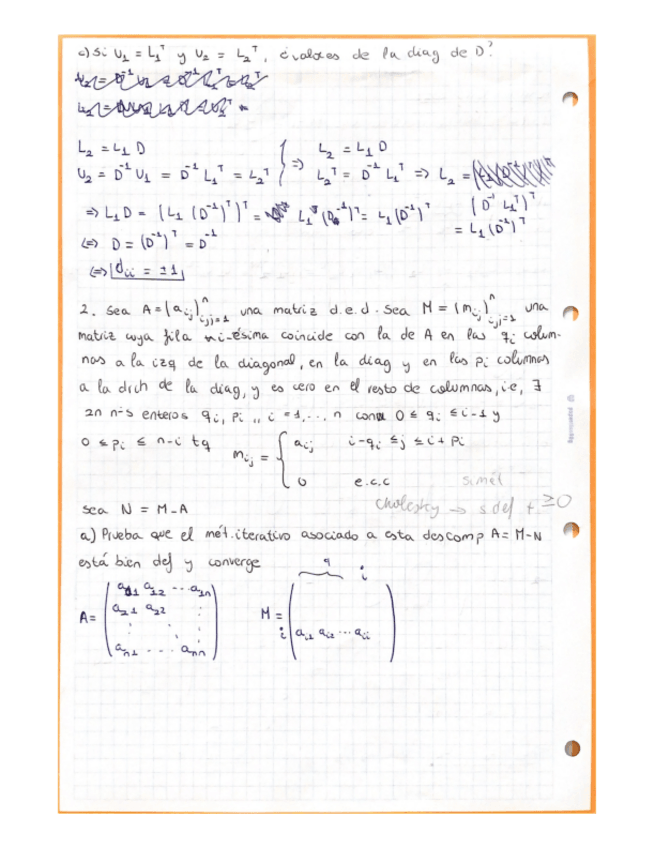 c) Si U₁ = L₁ᵀ y U₂ = L₂ᵀ, ¿valores de la diag de D?
L₂ = L₁ D
U₂ = D⁻¹ U₁ = D⁻¹ L₁ᵀ = L₂ᵀ } => L₂ = L₁ D
L₂ᵀ = D⁻¹ L₁ᵀ => L₂ =
(D⁻¹ L₁ᵀ)ᵀ
= L₁ (D⁻¹)ᵀ
=> L₁ D = (L₁ (D⁻¹)ᵀ)ᵀ = L₁ᵀ (D⁻¹)ᵀ = L₁ (D⁻¹)ᵀ
<=> D = (D⁻¹)ᵀ = D⁻¹
<=> dᵢᵢ = ±1
2. Sea A = (aᵢⱼ)ⁿᵢ,ⱼ₌₁ una matriz d.e.d. Sea M = (mᵢⱼ)ⁿᵢ,ⱼ₌₁ una
matriz cuya fila i-ésima coincide con la de A en las qᵢ colum-
nas a la izq de la diagonal, en la diag y en las pᵢ columnas
a la drch de la diag, y es cero en el resto de columnas, i.e, ∃
2n nºs enteros qᵢ, pᵢ ,, i = 1, ..., n con 0 ≤ qᵢ ≤ i-1 y
0 ≤ pᵢ ≤ n-i tq mᵢⱼ = { aᵢⱼ i-qᵢ ≤ j ≤ i+pᵢ
0 e.c.c
simét
Cholesky → s def + ≥0
Sea N = M-A
a) Prueba que el mét. iterativo asociado a esta descomp A = M-N
está bien def y converge
q i
A = ( a₁₁ a₁₂ ... a₁ₙ
a₂₁ a₂₂ ⋮
⋮ ⋱ ⋮
aₙ₁ ... aₙₙ )
M = ( i aᵢ₁ aᵢ₂ ... aᵢᵢ )